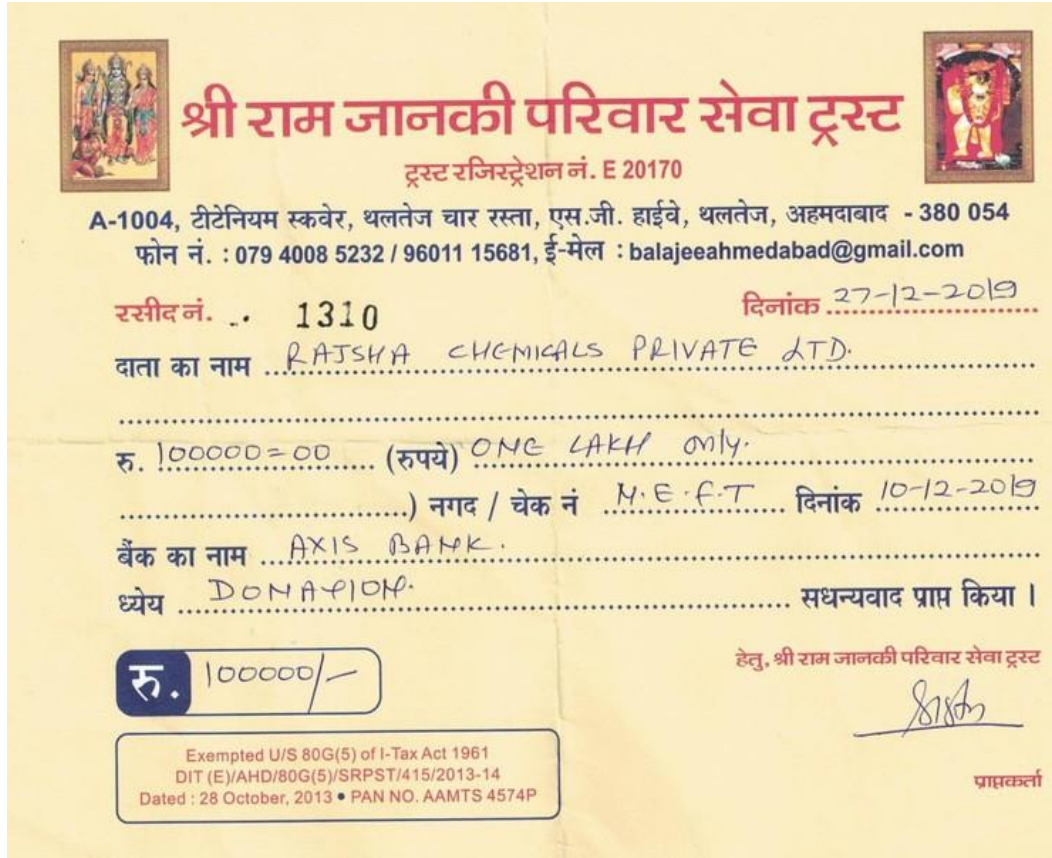 श्री राम जानकी परिवार सेवा ट्रस्ट
ट्रस्ट रजिस्ट्रेशन नं. E 20170
A-1004, टीटेनियम स्कवेर, थलतेज चार रस्ता, एस.जी. हाईवे, थलतेज, अहमदाबाद - 380 054
फोन नं. : 079 4008 5232 / 96011 15681, ई-मेल : balajeeahmedabad@gmail.com
रसीद नं. 1310 दिनांक 27-12-2019
दाता का नाम RAJSHA CHEMICALS PRIVATE LTD.
रु. 100000=00 (रुपये) ONE LAKH only.
) नगद / चेक नं N.E.F.T दिनांक 10-12-2019
बैंक का नाम AXIS BANK.
ध्येय DONATION. सधन्यवाद प्राप्त किया ।
हेतु, श्री राम जानकी परिवार सेवा ट्रस्ट
रु. 100000/-
Exempted U/S 80G(5) of I-Tax Act 1961
DIT (E)/AHD/80G(5)/SRPST/415/2013-14
Dated : 28 October, 2013 • PAN NO. AAMTS 4574P
प्राप्तकर्ता